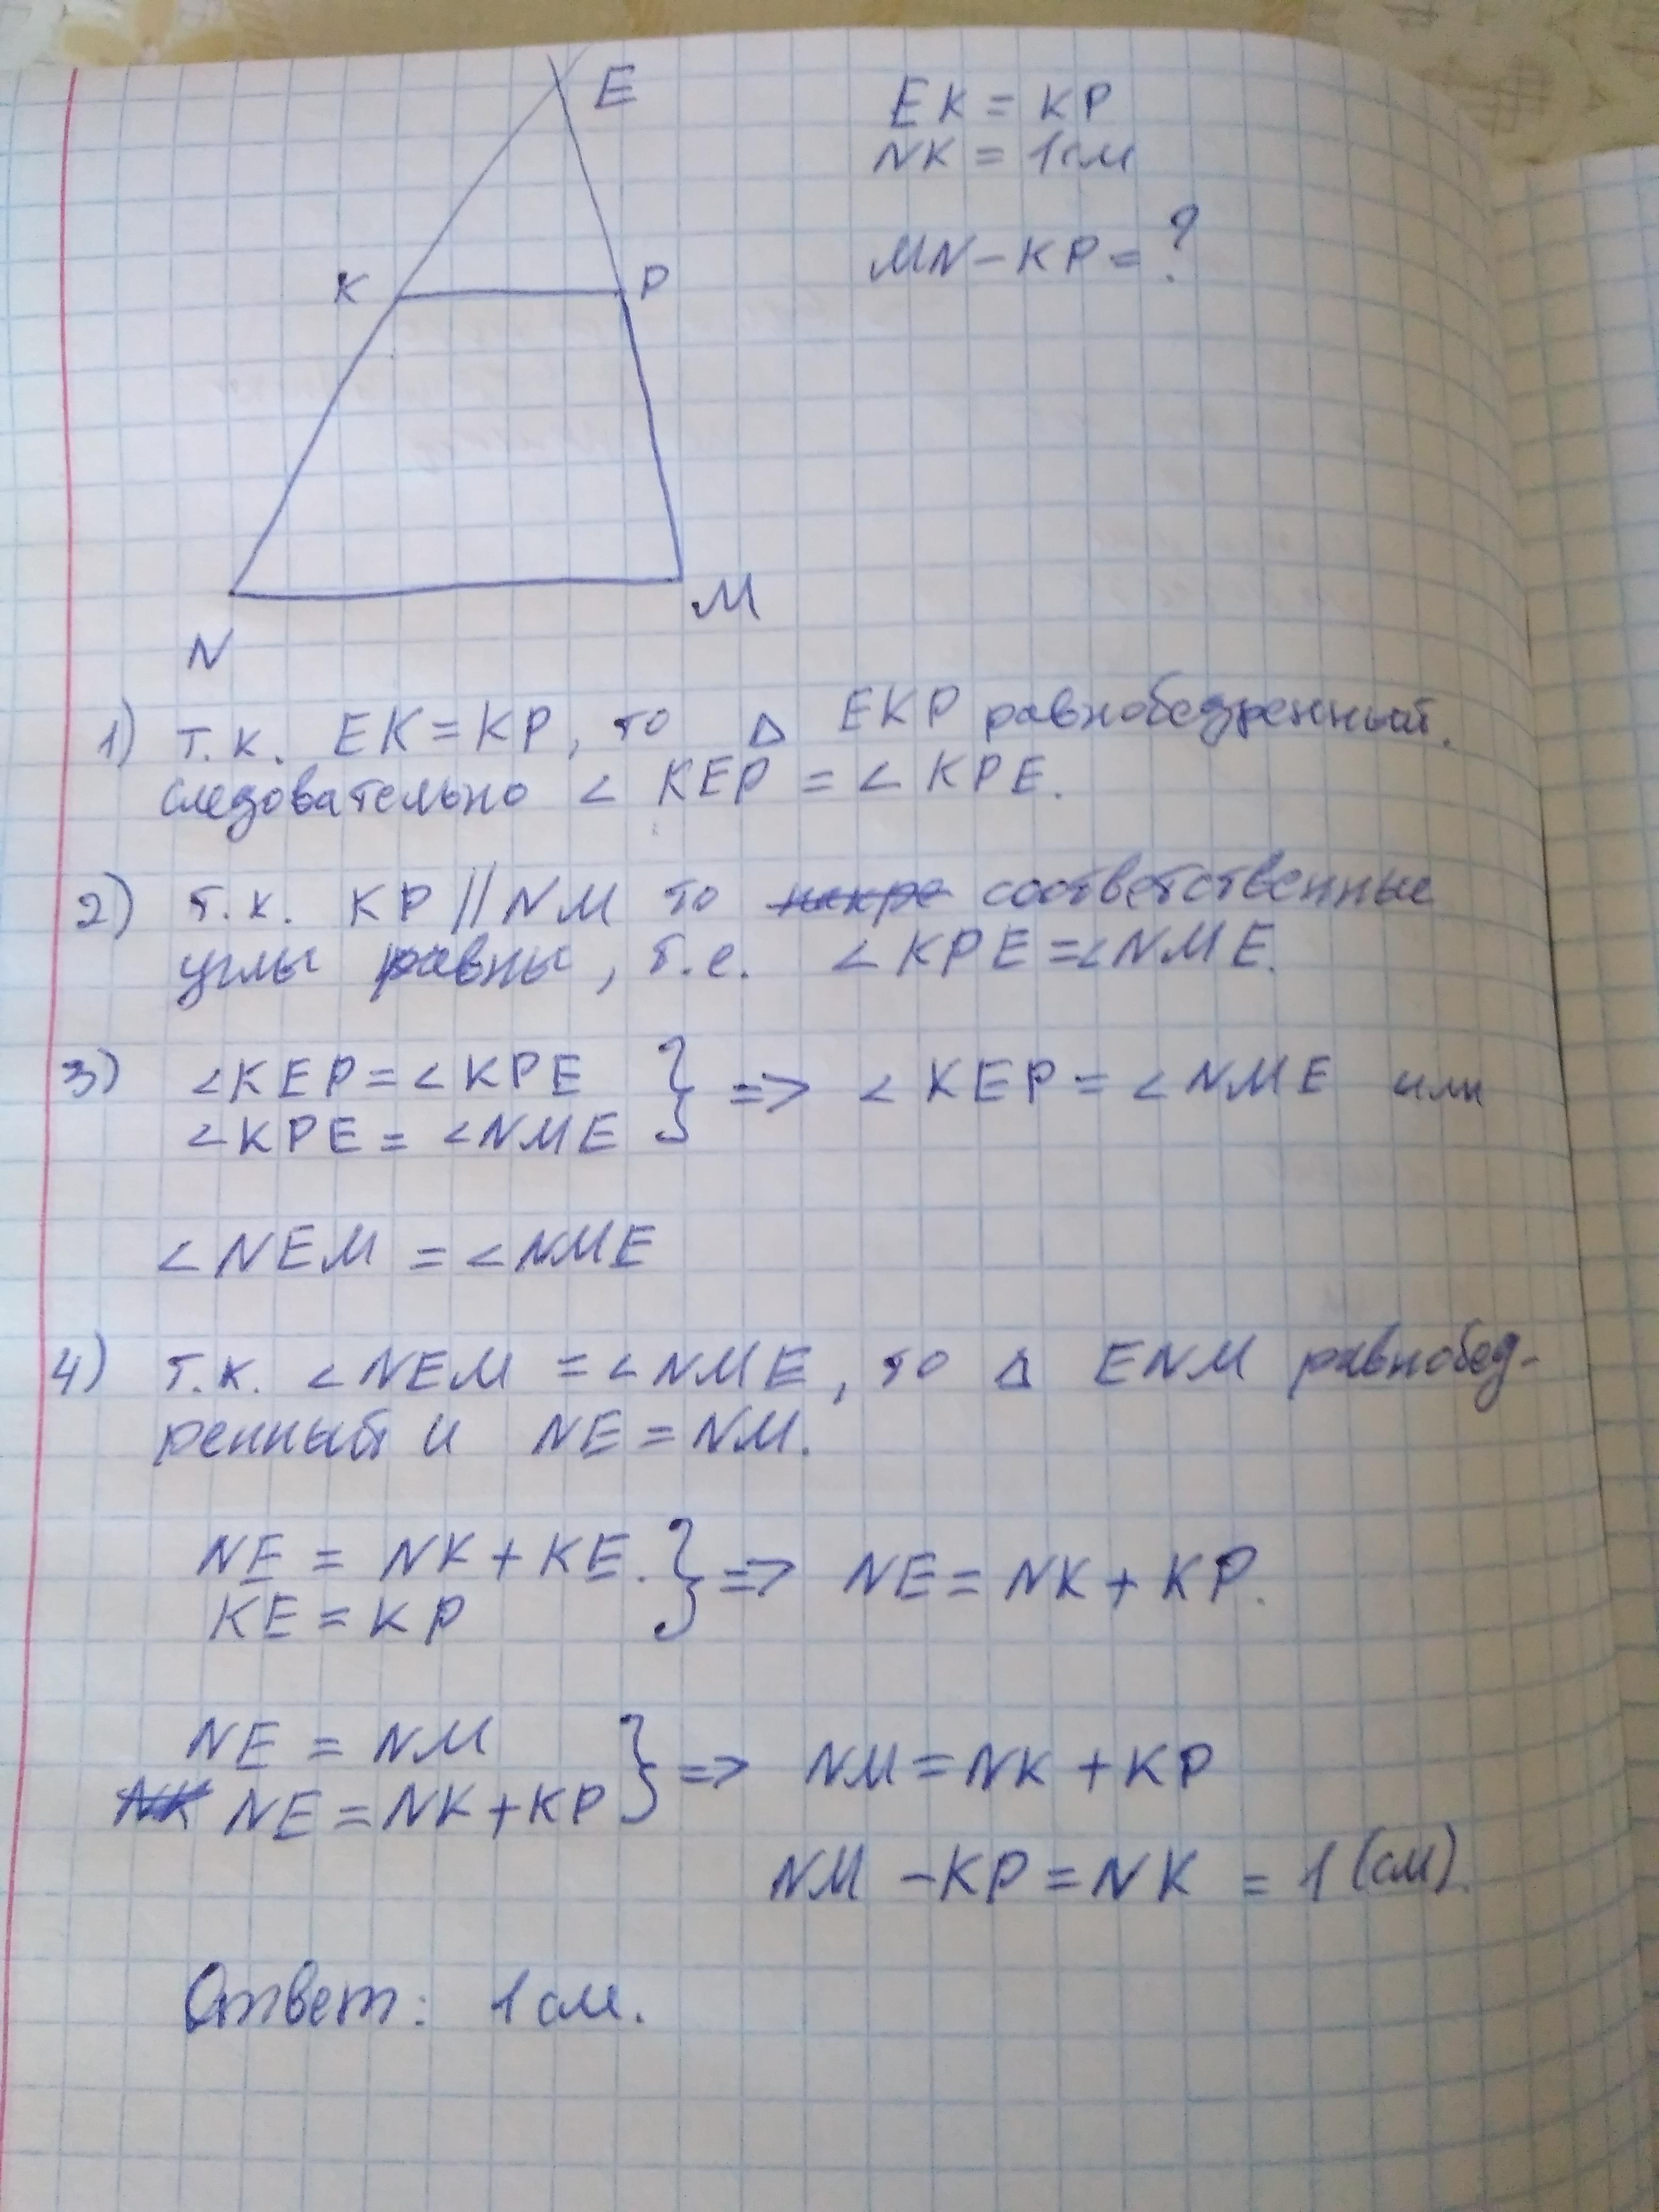 E
EK = KP
NK = 1см
MN - KP = ?
K
P
M
N
1) т.к. EK = KP, то Δ EKP равнобедренный.
следовательно ∠ KEP = ∠ KPE.
2) т.к. KP || NM то соответственные
углы равны, т.е. ∠ KPE = ∠ NME.
3) ∠KEP = ∠KPE } => ∠ KEP = ∠ NME или
∠KPE = ∠NME
∠NEM = ∠NME
4) т.к. ∠NEM = ∠NME, то Δ ENM равнобед-
ренный и NE = NM.
NE = NK + KE. } => NE = NK + KP.
KE = KP
NE = NM } => NM = NK + KP
NE = NK + KP
NM - KP = NK = 1 (см).
Ответ: 1 см.